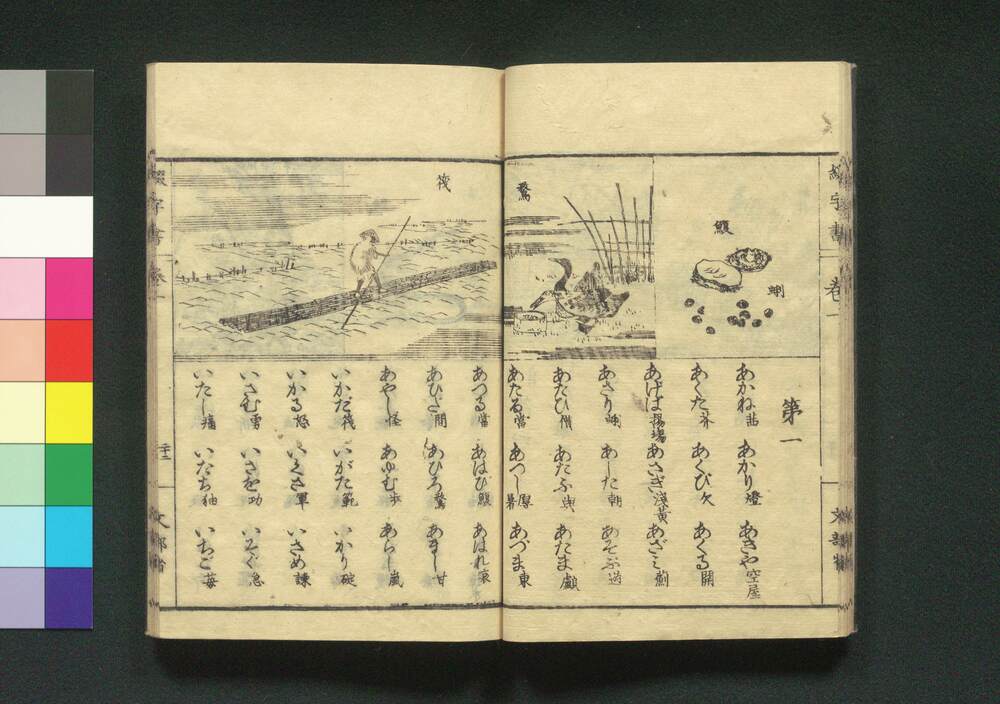 鰒
蜊
鶩
第一
あかね 茜 あかり 燈 あきや 空屋
あくた 芥 あくび 欠 あくる 開
あげば 揚場 あさぎ 淺黄 あざみ 薊
あさり 蜊 あした 朝 あそぶ 遊
あたひ 價 あたふ 與 あたま 顱
あたる 當 あつし 厚 暑 あづま 東
あつる 當 あはび 鰒 あはれ 哀
あひだ 間 あひろ 鶩 あまし 甘
あやし 怪 あゆむ 歩 あらし 嵐
筏
いかだ 筏 いがた 範 いかり 碇
いかる 怒 いくさ 軍 いさめ 諫
いさむ 勇 いさを 功 いそぐ 急
いたし 痛 いたち 鼬 いちご 苺
綴字書
卷一
文部省
綴字書 卷一
二十二
文部省